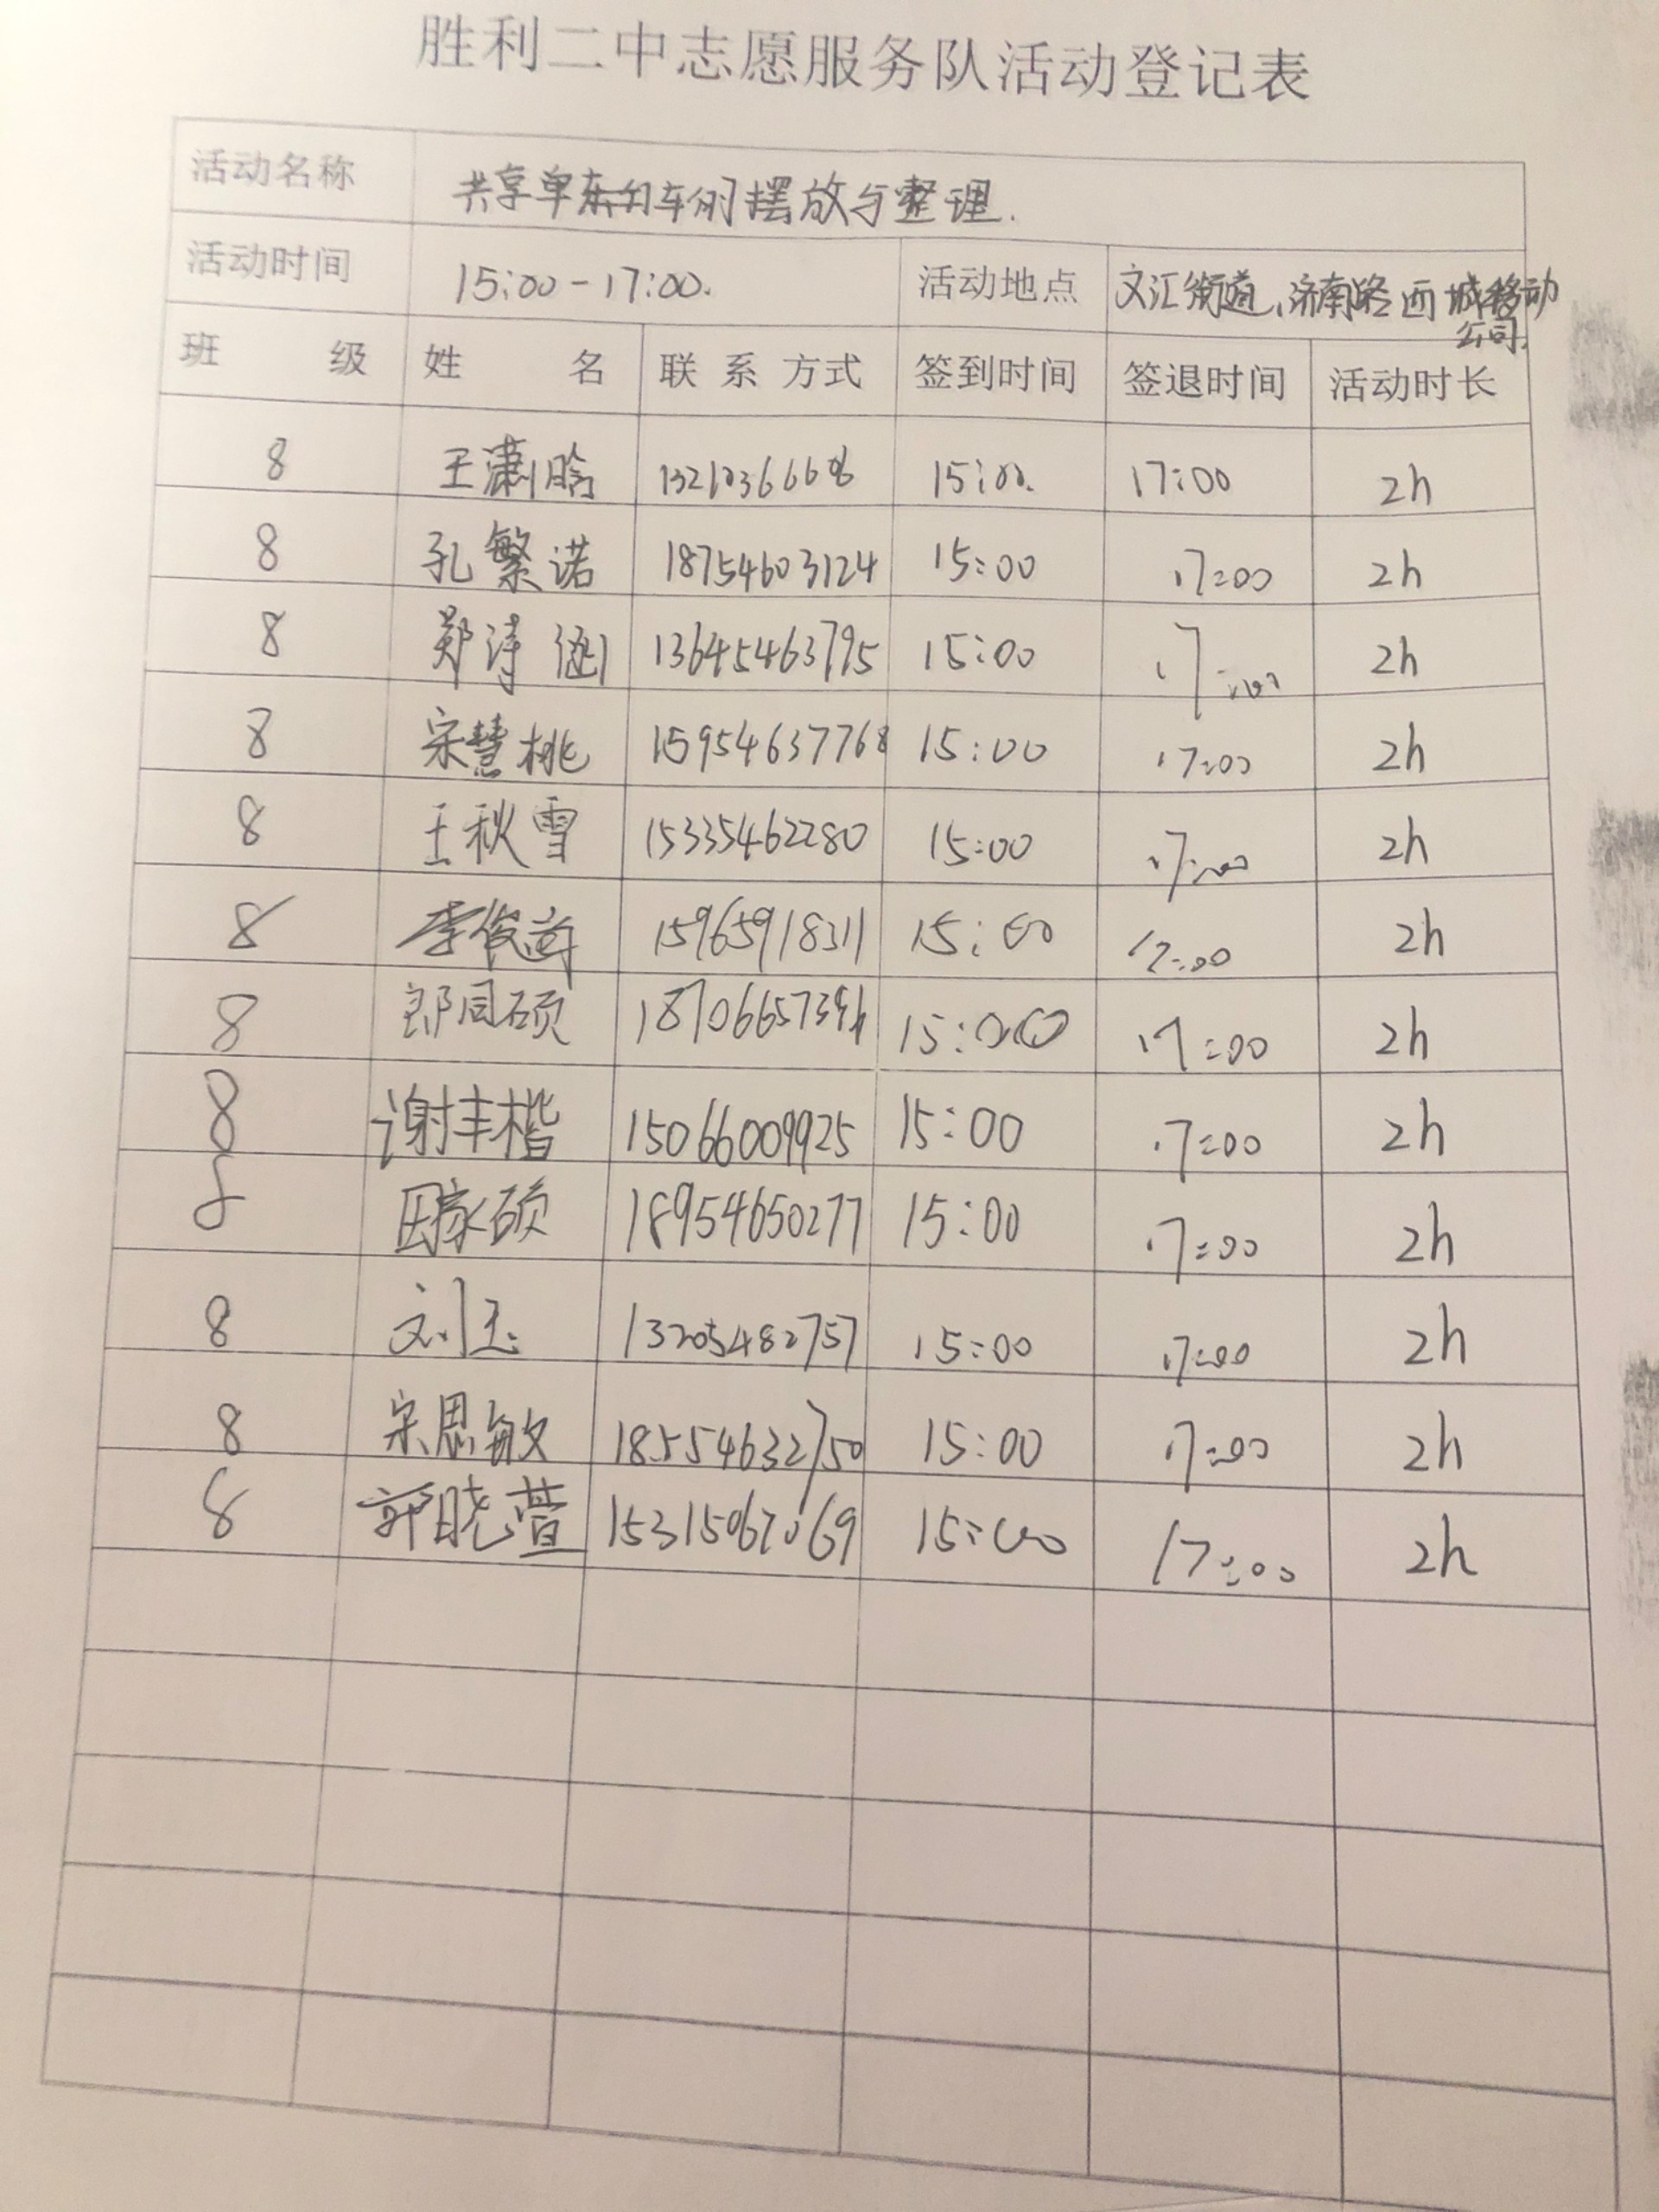 胜利二中志愿服务队活动登记表
活动名称 共享单车的摆放与整理.
活动时间 15:00-17:00. 活动地点 文汇街道、济南路西城移动公司.
班 级 姓 名 联系方式 签到时间 签退时间 活动时长
8 王潇晗 15:00. 17:00 2h
8 孔繁诺 18754603124 15:00 17:00 2h
8 郑涛涵 13645463795 15:00 17:00 2h
8 宋慧桃 15954637768 15:00 17:00 2h
8 王秋雪 15335462280 15:00 17:00 2h
8 李俊 15965918311 15:00 17:00 2h
8 郎同硕 15:00 17:00 2h
8 谢丰楷 15066009925 15:00 17:00 2h
8 田家硕 18954650277 15:00 17:00 2h
8 刘玉 13205482757 15:00 17:00 2h
8 宋思敏 18554632750 15:00 17:00 2h
8 郭晓萱 15315067069 15:00 17:00 2h